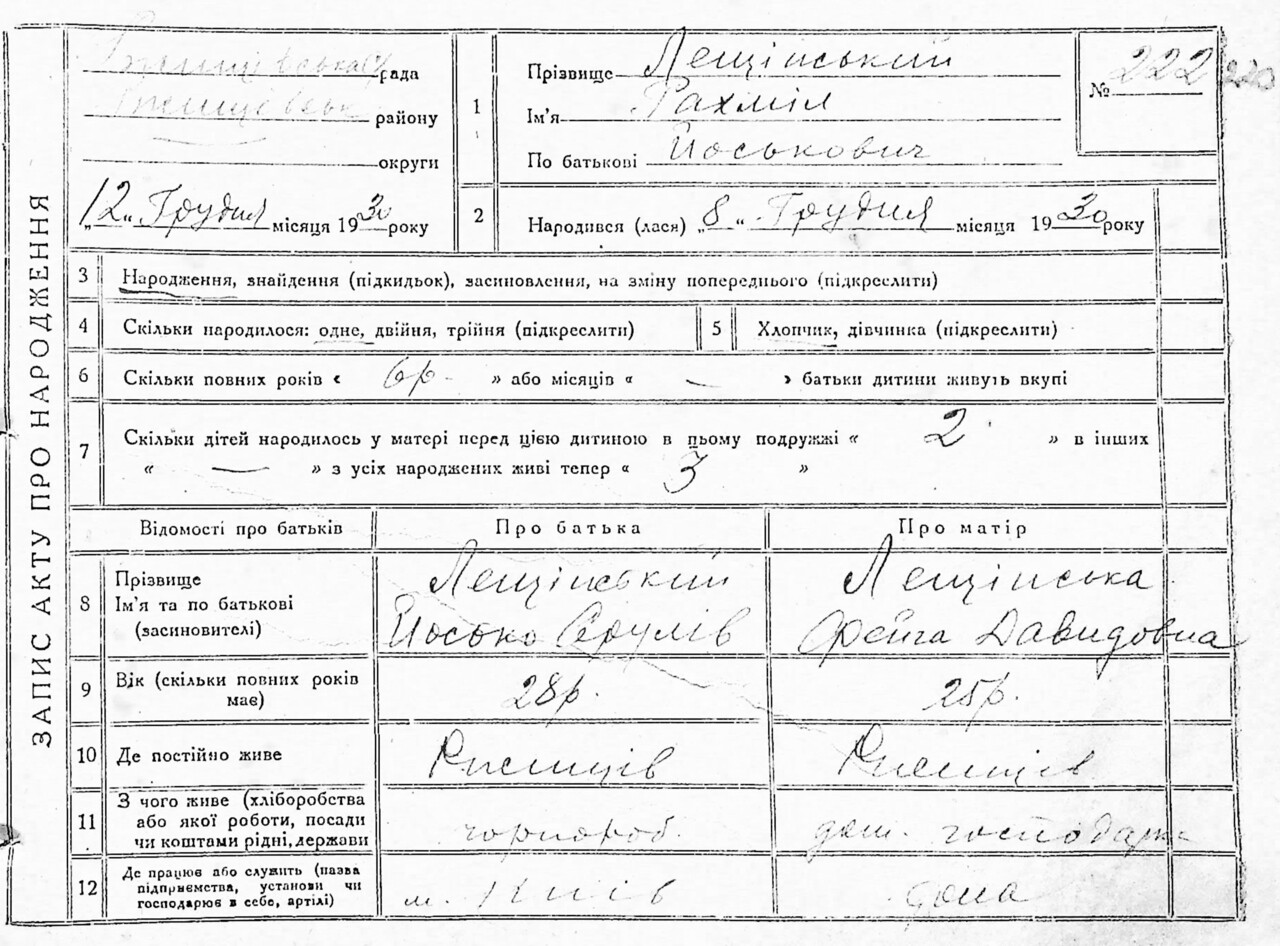 ЗАПИС АКТУ ПРО НАРОДЖЕННЯ
Ржищівська рада
Ржищівськ району
округи
„12„ Грудня місяця 1930 року
1
Прізвище Лещінський
Ім'я Рахміл
По батькові Йоськович
№ 222
2
Народився (лася) „8„ Грудня місяця 1930 року
3 Народження, знайдення (підкидьок), засиновлення, на зміну попереднього (підкреслити)
4 Скільки народилося: одне, двійня, трійня (підкреслити)
5 Хлопчик, дівчинка (підкреслити)
6 Скільки повних років « 6р. » або місяців « — » батьки дитини живуть вкупі
7 Скільки дітей народилось у матері перед цією дитиною в цьому подружжі « 2 » в інших
« — » з усіх народжених живі тепер « 3 »
Відомості про батьків Про батька Про матір
8 Прізвище
Ім'я та по батькові
(засиновителі)
Лещінський
Йосько Срулів
Лещінська
Фейга Давидовна
9 Вік (скільки повних років
має)
28р. 25р.
10 Де постійно живе Ржищів Ржищів
11 З чого живе (хліборобства
або якої роботи, посади
чи коштами рідні, держави
чорнороб. дом. господарка
12 Де працює або служить (назва
підприємства, установи чи
господарює в себе, артілі)
м. Київ дома